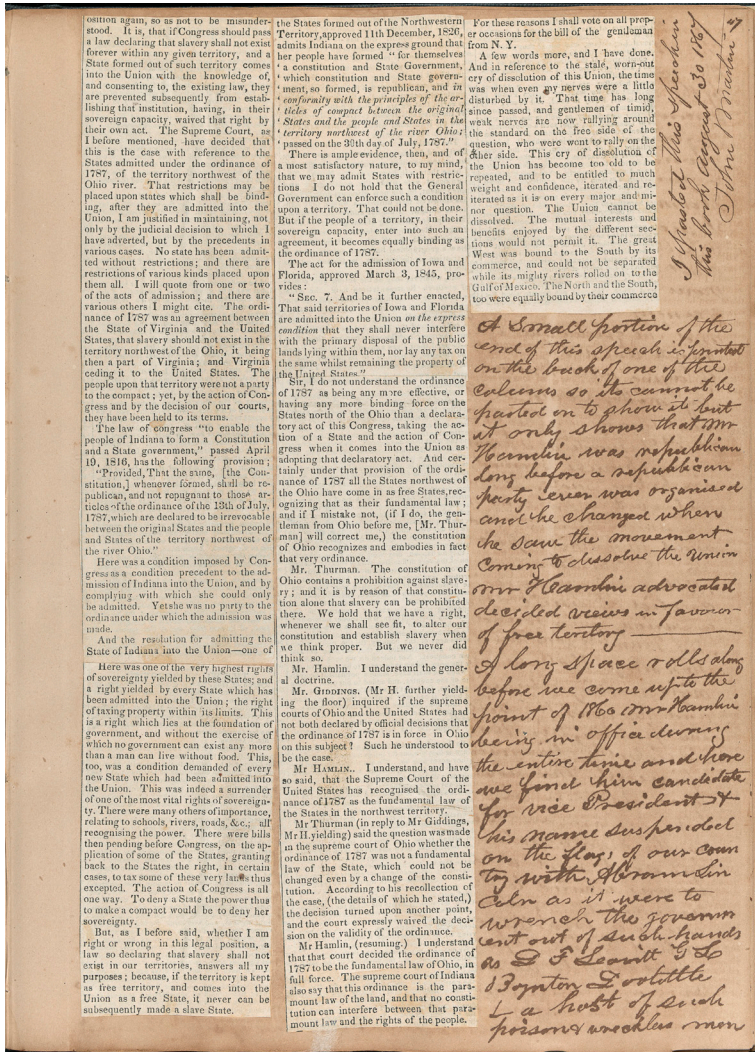 osition again, so as not to be misunder-
stood. It is, that if Congress should pass
a law declaring that slavery shall not exist
forever within any given territory, and a
State formed out of such territory comes
into the Union with the knowledge of,
and consenting to, the existing law, they
are prevented subsequently from estab-
lishing that institution, having, in their
sovereign capacity, waived that right by
their own act. The Supreme Court, as
I before mentioned, have decided that
this is the case with reference to the
States admitted under the ordinance of
1787, of the territory northwest of the
Ohio river. That restrictions may be
placed upon states which shall be bind-
ing, after they are admitted into the
Union, I am justified in maintaining, not
only by the judicial decision to which I
have adverted, but by the precedents in
various cases. No state has been admit-
ted without restrictions; and there are
restrictions of various kinds placed upon
them all. I will quote from one or two
of the acts of admission; and there are
various others I might cite. The ordi-
nance of 1787 was an agreement between
the State of Virginia and the United
States, that slavery should not exist in the
territory northwest of the Ohio, it being
then a part of Virginia; and Virginia
ceding it to the United States. The
people upon that territory were not a party
to the compact; yet, by the action of Con-
gress and by the decision of our courts,
they have been held to its terms.
The law of congress "to enable the
people of Indiana to form a Constitution
and a State government," passed April
19, 1816, has the following provision;
"Provided, That the same, [the Con-
stitution,] whenever formed, shall be re-
publican, and not repugnant to those ar-
ticles of the ordinance of the 13th of July,
1787, which are declared to be irrevocable
between the original States and the people
and States of the territory northwest of
the river Ohio."
Here was a condition imposed by Con-
gress as a condition precedent to the ad-
mission of Indiana into the Union, and by
complying with which she could only
be admitted. Yet she was no party to the
ordinance under which the admission was
made.
And the resolution for admitting the
State of Indiana into the Union—one of
Here was one of the very highest rights
of sovereignty yielded by these States; and
a right yielded by every State which has
been admitted into the Union; the right
of taxing property within its limits. This
is a right which lies at the foundation of
government, and without the exercise of
which no government can exist any more
than a man can live without food. This,
too, was a condition demanded of every
new State which had been admitted into
the Union. This was indeed a surrender
of one of the most vital rights of sovereign-
ty. There were many others of importance,
relating to schools, rivers, roads, &c.; all
recognising the power. There were bills
then pending before Congress, on the ap-
plication of some of the States, granting
back to the States the right, in certain
cases, to tax some of these very lands thus
excepted. The action of Congress is all
one way. To deny a State the power thus
to make a compact would be to deny her
sovereignty.
But, as I before said, whether I am
right or wrong in this legal position, a
law so declaring that slavery shall not
exist in our territories, answers all my
purposes; because, if the territory is kept
as free territory, and comes into the
Union as a free State, it never can be
subsequently made a slave State.
the States formed out of the Northwestern
Territory, approved 11th December, 1826,
admits Indiana on the express ground that
her people have formed "for themselves
' a constitution and State Government,
' which constitution and State govern-
' ment, so formed, is republican, and in
' conformity with the principles of the ar-
' ticles of compact between the original
' States and the people and States in the
' territory northwest of the river Ohio;
' passed on the 30th day of July, 1787."
There is ample evidence, then, and of
a most satisfactory nature, to my mind,
that we may admit States with restric-
tions I do not hold that the General
Government can enforce such a condition
upon a territory. That could not be done.
But if the people of a territory, in their
sovereign capacity, enter into such an
agreement, it becomes equally binding as
the ordinance of 1787.
The act for the admission of Iowa and
Florida, approved March 3, 1845, pro-
vides:
"SEC. 7. And be it further enacted,
That said territories of Iowa and Florida
are admitted into the Union on the express
condition that they shall never interfere
with the primary disposal of the public
lands lying within them, nor lay any tax on
the same whilst remaining the property of
the United States."
Sir, I do not understand the ordinance
of 1787 as being any more effective, or
having any more binding force on the
States north of the Ohio than a declara-
tory act of this Congress, taking the ac-
tion of a State and the action of Con-
gress when it comes into the Union as
adopting that declaratory act. And cer-
tainly under that provision of the ordi-
nance of 1787 all the States northwest of
the Ohio have come in as free States, rec-
ognizing that as their fundamental law;
and if I mistake not, (if I do, the gen-
tleman from Ohio before me, [Mr. Thur-
man] will correct me,) the constitution
of Ohio recognizes and embodies in fact
that very ordinance.
Mr. Thurman. The constitution of
Ohio contains a prohibition against slave-
ry; and it is by reason of that constitu-
tion alone that slavery can be prohibited
there. We hold that we have a right,
whenever we shall see fit, to alter our
constitution and establish slavery when
we think proper. But we never did
think so.
Mr. Hamlin. I understand the gener-
al doctrine.
Mr. GIDDINGS. (Mr H. further yield-
ing the floor) inquired if the supreme
courts of Ohio and the United States had
not both declared by official decisions that
the ordinance of 1787 is in force in Ohio
on this subject? Such he understood to
be the case.
Mr HAMLIN. I understand, and have
so said, that the Supreme Court of the
United States has recognised the ordi-
nance of 1787 as the fundamental law of
the States in the northwest territory.
Mr Thurman (in reply to Mr Giddings,
Mr H. yielding) said the question was made
in the supreme court of Ohio whether the
ordinance of 1787 was not a fundamental
law of the State, which could not be
changed even by a change of the consti-
tution. According to his recollection of
the case, (the details of which he stated,)
the decision turned upon another point,
and the court expressly waived the deci-
sion on the validity of the ordinance.
Mr Hamlin, (resuming.) I understand
that that court decided the ordinance of
1787 to be the fundamental law of Ohio, in
full force. The supreme court of Indiana
also say that this ordinance is the para-
mount law of the land, and that no consti-
tution can interfere between that para-
mount law and the rights of the people.
For these reasons I shall vote on all prop-
er occasions for the bill of the gentleman
from N. Y.
A few words more, and I have done.
And in reference to the stale, worn-out
cry of dissolution of this Union, the time
was when even my nerves were a little
disturbed by it. That time has long
since passed, and gentlemen of timid,
weak nerves are now rallying around
the standard on the free side of the
question, who were wont to rally on the
other side. This cry of dissolution of
the Union has become too old to be
repeated, and to be entitled to much
weight and confidence, iterated and re-
iterated as it is on every major and mi-
nor question. The Union cannot be
dissolved. The mutual interests and
benefits enjoyed by the different sec-
tions would not permit it. The great
West was bound to the South by its
commerce, and could not be separated
while its mighty rivers rolled on to the
Gulf of Mexico. The North and the South,
too were equally bound by their commerce
I pasted this Speech in
this book August 30 1867
John Martin
A Small portion of the
end of this speech is printed
on the back of one of the
colums so its cannot be
pasted on to show it but
it only shows that Mr
Hamlin was republican
long before a republican
party ever was organised
and he changed when
he saw the movement
coming to dissolve the Union
Mr Hamlin advocated
decided views in favour
of free territory
A long space rolls along
before we come up to the
point of 1860 Mr Hamlin
being in office during
the entire time and here
we find him candidate
for vice President &
his name suspended
on the flag of our coun
try with Abram Lin
coln as it were to
wrench the governm
ent out of such hands
as D F Leavitt G L
Boynton Doolittle
& a host of such
poison & wreckless men